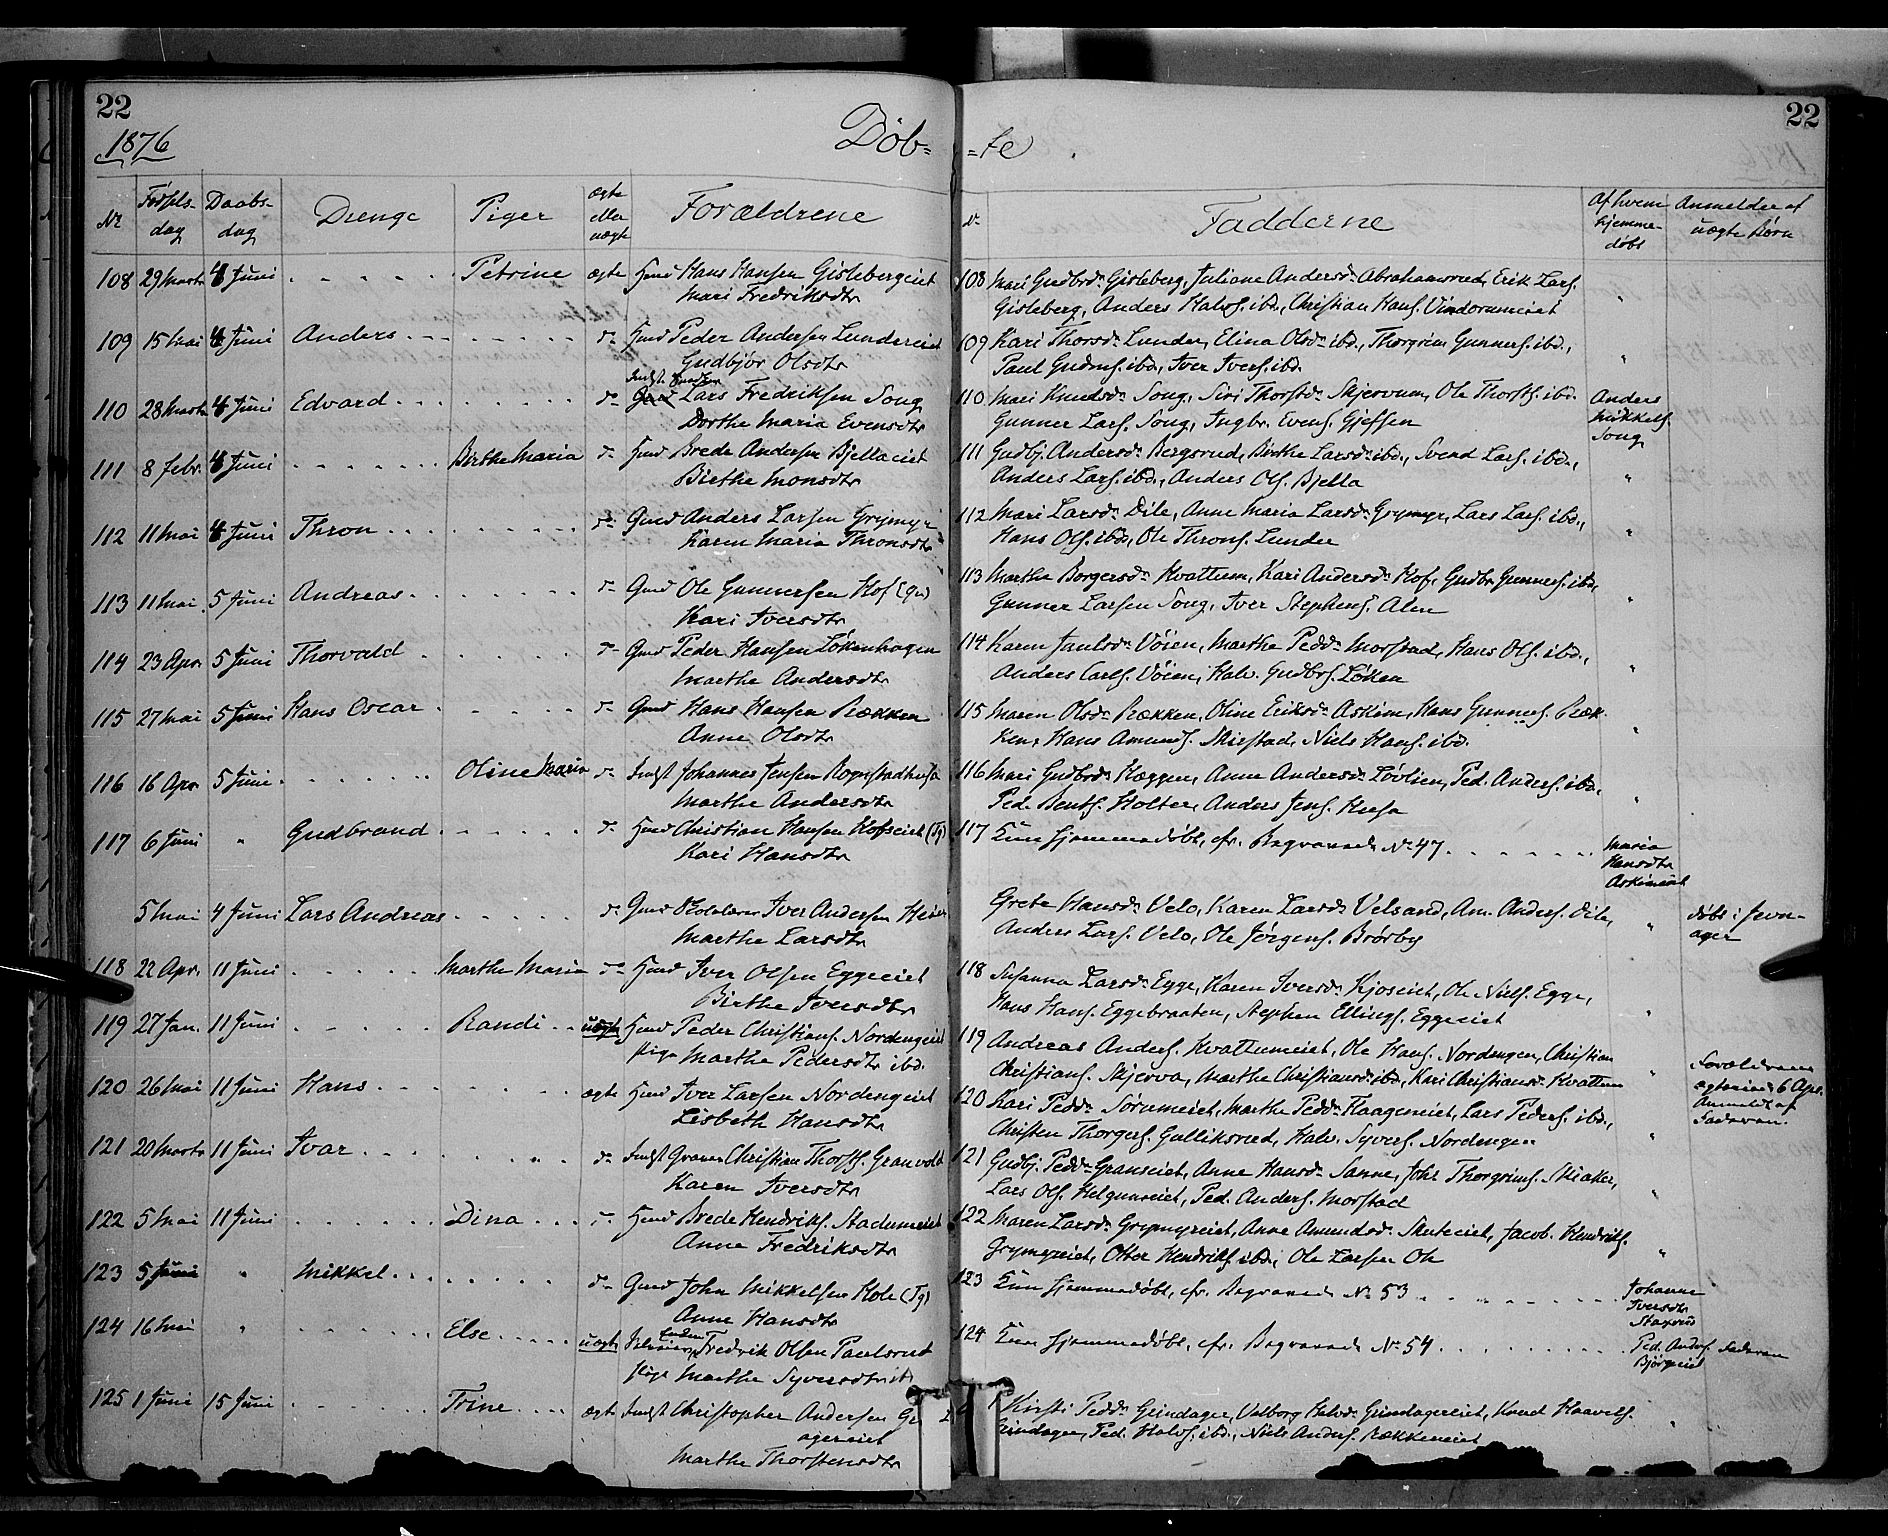 22
1876
Døb-
Nr
Fødsels-
dag
Daabs-
dag
Drenge
Piger
ægte
eller
uægte
Forældrene
108 29 Marts 4 Juni Petrine ægte Huusd Hans Hansen Gislebergeiet
Mari Fredriksdtr
109 15 Mai 4 Juni Anders do Huusd Peder Andersen Lundereiet
Gudbjør Olsdtr
110 28 Marts 4 Juni Edvard do Lars Fredriksen Song
Dorthe Maria Evensdtr
111 8 Febr. 4 Juni Birthe Maria do Huusd Brede Andersen Bjellaeiet
Birthe Monsdtr
112 11 Mai 4 Juni Thron do Gmd Anders Larsen Grymyr
Karen Maria Thronsdtr
113 11 Mai 5 Juni Andreas do Gmd Ole Gunnersen Hof (Gr)
Kari Iversdtr
114 23 Apr. 5 Juni Thorvald do Gmd Peder Hansen Løkenhagen
Marthe Andersdtr
115 27 Mai 5 Juni Hans Oscar do Gmd Hans Hansen Rækken
Anne Olsdtr
116 16 Apr. 5 Juni Oline Maria do Indst Johannes Jensen
Marthe Andersdtr
117 6 Juni " Gudbrand do Huusd Christian Hansen Hofseiet (Tg)
Kari Hansdtr
5 Mai 4 Juni Lars Andreas do Gmd Iver Andersen
Marthe Larsdtr
118 22 Apr. 11 Juni Marthe Maria do Huusd Iver Olsen Eggeeiet
Birthe Iversdtr
119 27 Jan. 11 Juni Randi uægte Huusd Peder Christians. Nordengeiet
Pige Marthe Pedersdtr ibd.
120 26 Mai 11 Juni Hans ægte Huusd Iver Larsen Nordengeiet
Lisbeth Hansdtr
121 20 Marts 11 Juni Ivar do Indst Graver Christian Thorst. Granvold
Karen Iversdtr
122 5 Mai 11 Juni Dina do Huusd Brede Hendriks. Stadumeiet
Anne Fredriksdtr
123 5 Juni " Mikkel do Gmd John Mikkelsen Hole (Tg)
Anne Hansdtr
124 16 Mai " Else uægte Fredrik Olsen Paulsrud
Pige Marthe Syversdtr
125 1 Juni 15 Juni Trine ægte Indst Christopher Andersen
agereiet
Marthe Thorstensdtr
22
-te
Nr
Fadderne
Af hvem
hjemme-
døbt
Anmeldes af
uægte Børn
108 Mari Gudbrdr Gisleberg, Juliane Andersdr Abrahamsrud, Erik Lars.
Gisleberg, Anders Halvs. ibd., Christian Hans. Vindorumeiet
109 Kari Thorsdr Lunder, Elina Olsdr ibd., Thorgrim Gunners. ibd.,
Paul Gudms. ibd., Iver Ivers. ibd.
110 Mari Knudsdr Song, Siri Thorstdr Skjervum, Ole Thorsts. ibd.
Gunner Lars. Song, Ingbr. Evens. Gjefsen
Anders
Mikkels.
Song
111 Gudbj. Andersdr Bergsrud, Birthe Larsdr ibd., Svend Lars. ibd.,
Anders Lars. ibd., Anders Ols. Bjella
112 Mari Larsdr Dile, Anne Maria Larsdr Grymyr, Lars Lars. ibd.,
Hans Ols. ibd., Ole Throns. Lunder
113 Marthe Borgersdr Kvattum, Kari Andersdr Hof, Gudbr. Gunners. ibd.,
Gunner Larsen Song, Iver Stephens. Alm
114 Karen Paulsdr Vøien, Marthe Peddr Morstad, Hans Ols. ibd.,
Anders Carls. Vøien, Halv. Gudbrs. Løken
115 Maren Olsdr Rækken, Oline Eriksdr Askim, Hans Gunners. Ræk-
ken, Hans Amunds. Skiestad, Niels Hans. ibd.
116 Mari Gudbrdr Kæggen, Anne Andersdr Løvlien, Ped. Anders. ibd.,
Ped. Bents. Holter, Anders Jens.
117 Kun hjemmedøbt, cfr. No 47
Maria
Hansdtr
Askimeiet
Grete Hansdr Velo, Karen Larsdr Velsand, Am. Anders. Dile,
Anders Lars. Velo, Ole Jørgens. Brørby
døbt i Jevn-
ager
118 Susanna Larsdr Egge, Karen Iversdr Kjoseiet, Ole Niels. Egge,
Hans Hans. Eggebraaten, Stephen Ellings. Eggeeiet
119 Andreas Anders. Kvattumeiet, Ole Hans. Nordengen, Christian
Christians. Skjerva, Marthe Christiansdr ibd., Kari Christiansdr Kvattum
Forældrene
6 Apr.
Anmeldt af
Faderen.
120 Kari Peddr Sørumeiet, Marthe Peddr Haageneiet, Lars Peders. ibd.,
Christen Thorgers. Gulliksrud, Halv. Syvers. Nordengen
121 Gudbj. Peddr Granseiet, Anne Hansdr Sanne, Johs Thorgrims. Skiaker,
Lars Ols. Helgumeiet, Ped. Anders. Morstad
122 Maren Larsdr Grymyreiet, Anne Amundsdr Skuteeiet, Jacob Hendriks.
Grymyreiet, Otter Hendriks. ibd., Ole Larsen Oh
123 Kun hjemmedøbt, cfr. No 53
Johanne
Iversdtr
Staxrud
124 Kun hjemmedøbt, cfr. No 54
Ped. Anders.
Bjørgeeiet
Faderen
Kirsti Peddr Grindager, Valborg Halvdr Grindagereiet, Knud Haavels.
Grindager, Ped. Halvs. ibd., Niels Anders. Rækkeneiet